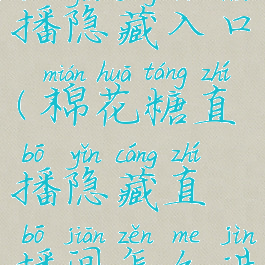 播隐藏入口
mián huā táng zhí
(棉花糖直
bō yǐn cáng zhí
播隐藏直
bō jiān zěn me jìn
播间怎么进